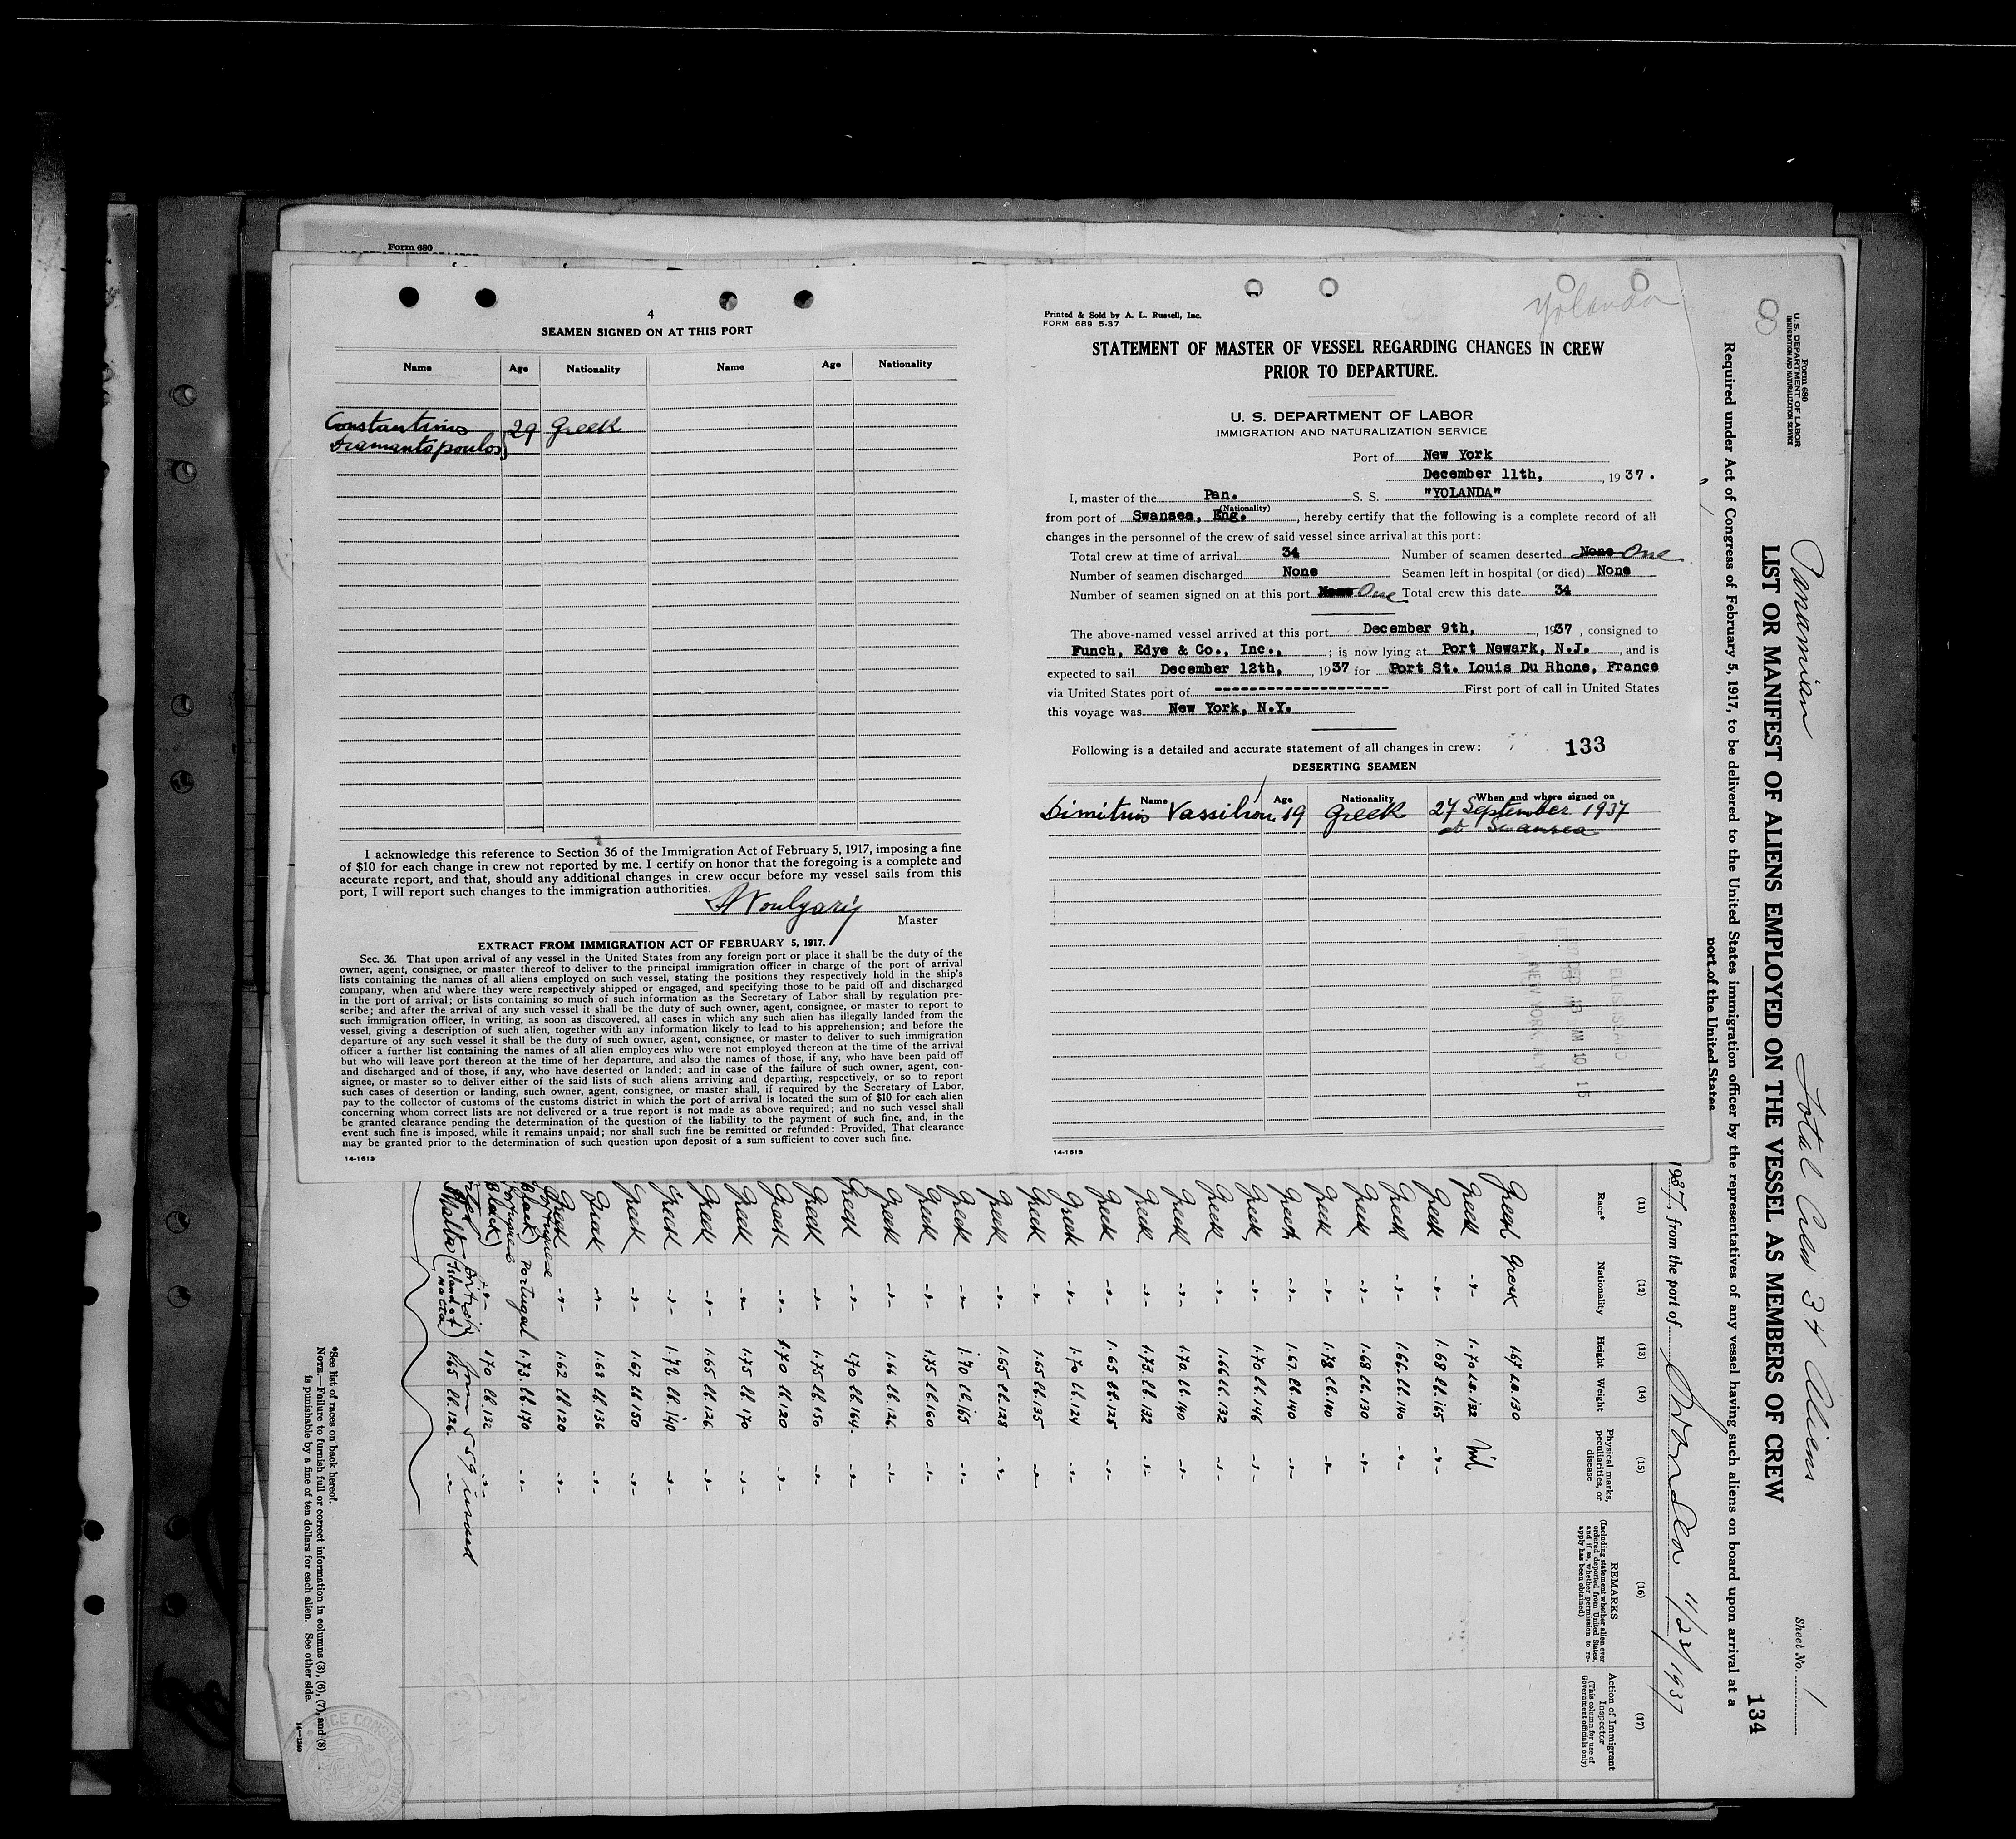 Form 680
4
SEAMEN SIGNED ON AT THIS PORT
Name Age Nationality Name Age Nationality
Constantinos
Diamantopoulos} 29 Greek
I acknowledge this reference to Section 36 of the Immigration Act of February 5, 1917, imposing a fine
of $10 for each change in crew not reported by me. I certify on honor that the foregoing is a complete and
accurate report, and that, should any additional changes in crew occur before my vessel sails from this
port, I will report such changes to the immigration authorities.
Master
EXTRACT FROM IMMIGRATION ACT OF FEBRUARY 5, 1917.
Sec. 36. That upon arrival of any vessel in the United States from any foreign port or place it shall be the duty of the
owner, agent, consignee, or master thereof to deliver to the principal immigration officer in charge of the port of arrival
lists containing the names of all aliens employed on such vessel, stating the positions they respectively hold in the ship's
company, when and where they were respectively shipped or engaged, and specifying those to be paid off and discharged
in the port of arrival; or lists containing so much of such information as the Secretary of Labor shall by regulation pre-
scribe; and after the arrival of any such vessel it shall be the duty of such owner, agent, consignee, or master to report to
such immigration officer, in writing, as soon as discovered, all cases in which any such alien has illegally landed from the
vessel, giving a description of such alien, together with any information likely to lead to his apprehension; and before the
departure of any such vessel it shall be the duty of such owner, agent, consignee, or master to deliver to such immigration
officer a further list containing the names of all alien employees who were not employed thereon at the time of the arrival
but who will leave port thereon at the time of her departure, and also the names of those, if any, who have been paid off
and discharged and of those, if any, who have deserted or landed; and in case of the failure of such owner, agent, con-
signee, or master so to deliver either of the said lists of such aliens arriving and departing, respectively, or so to report
such cases of desertion or landing, such owner, agent, consignee, or master shall, if required by the Secretary of Labor,
pay to the collector of customs of the customs district in which the port of arrival is located the sum of $10 for each alien
concerning whom correct lists are not delivered or a true report is not made as above required; and no such vessel shall
be granted clearance pending the determination of the question of the liability to the payment of such fine, and, in the
event such fine is imposed, while it remains unpaid; nor shall such fine be remitted or refunded: Provided, That clearance
may be granted prior to the determination of such question upon deposit of a sum sufficient to cover such fine.
14-1613
Yolanda
Printed & Sold by A. L. Russell, Inc.
FORM 689 5-37
STATEMENT OF MASTER OF VESSEL REGARDING CHANGES IN CREW
PRIOR TO DEPARTURE.
U. S. DEPARTMENT OF LABOR
IMMIGRATION AND NATURALIZATION SERVICE
Port of New York
December 11th, , 1937.
I, master of the Pan. S. S. "YOLANDA"
(Nationality)
from port of Swansea, Eng. , hereby certify that the following is a complete record of all
changes in the personnel of the crew of said vessel since arrival at this port:
Total crew at time of arrival 34 Number of seamen deserted None One
Number of seamen discharged None Seamen left in hospital (or died) None
Number of seamen signed on at this port None One Total crew this date 34
The above-named vessel arrived at this port December 9th, , 1937 , consigned to
Funch, Edye & Co., Inc., ; is now lying at Port Newark, N.J. , and is
expected to sail December 12th, , 1937 for Port St. Louis Du Rhone, France
via United States port of -------------------- First port of call in United States
this voyage was New York, N.Y.
Following is a detailed and accurate statement of all changes in crew: 133
DESERTING SEAMEN
Name Age Nationality When and where signed on
Dimitrios Vassiliou 19 Greek 27 September 1937
at Swansea
ELLIS ISLAND
AM 10 15
NEW YORK, N.Y.
14-1613
Form 680
U. S. DEPARTMENT OF LABOR
IMMIGRATION AND NATURALIZATION SERVICE
Panamian Total Crew 34 Aliens Sheet No. 1
134
LIST OR MANIFEST OF ALIENS EMPLOYED ON THE VESSEL AS MEMBERS OF CREW
Required under Act of Congress of February 5, 1917, to be delivered to the United States immigration officer by the representatives of any vessel having such aliens on board upon arrival at a
port of the United States
1937, from the port of Swansea 11/23/1937
(11) (12) (13) (14) (15) (16) (17)
Race* Nationality Height Weight Physical marks, peculiarities, or disease REMARKS (Including statement whether alien ever ordered deported from United States, and if so, whether permission to re-apply has been obtained) Action of Immigrant Inspector (This column for use of Government officials only)
Greek Greek 1.67 LB.130
Greek -"- 1.70 LB.132 Nil
Greek -"- 1.68 lb.165 -"-
Greek -"- 1.66 lb.140 -"-
Greek -"- 1.68 lb.130 -"-
Greek -"- 1.78 lb.180 -"-
Greek -"- 1.67 lb.140 -"-
Greek -"- 1.70 lb.146 -"-
Greek -"- 1.66 lb.132 -"-
Greek -"- 1.70 lb.140 -"-
Greek -"- 1.73 lb.132 -"-
Greek -"- 1.65 lb.125 -"-
Greek -"- 1.70 lb.124 -"-
Greek -"- 1.65 lb.135 -"-
Greek -"- 1.65 lb.128 -"-
Greek -"- 1.70 lb.165 -"-
Greek -"- 1.75 lb.160 -"-
Greek -"- 1.66 lb.126 -"-
Greek -"- 1.70 lb.164 -"-
Greek -"- 1.75 lb.150 -"-
Greek -"- 1.70 lb.120 -"-
Greek -"- 1.75 lb.170 -"-
Greek -"- 1.65 lb.126 -"-
Greek -"- 1.72 lb.140 -"-
Greek -"- 1.67 lb.150 -"-
Greek -"- 1.68 lb.136 -"-
Greek -"- 1.62 lb.120 -"-
Portuguese
(Black) Portugal 1.73 lb.170 -"-
Portuguese
(Black) -"- 1.70 lb.132 -"-
British Form 559 issued
Malta (Island of Malta) 1.65 lb.126 -"-
*See list of races on back hereof.
NOTE.—Failure to furnish full or correct information in columns (3), (6), (7), and (8)
is punishable by a fine of ten dollars for each alien. See other side.
14-1240